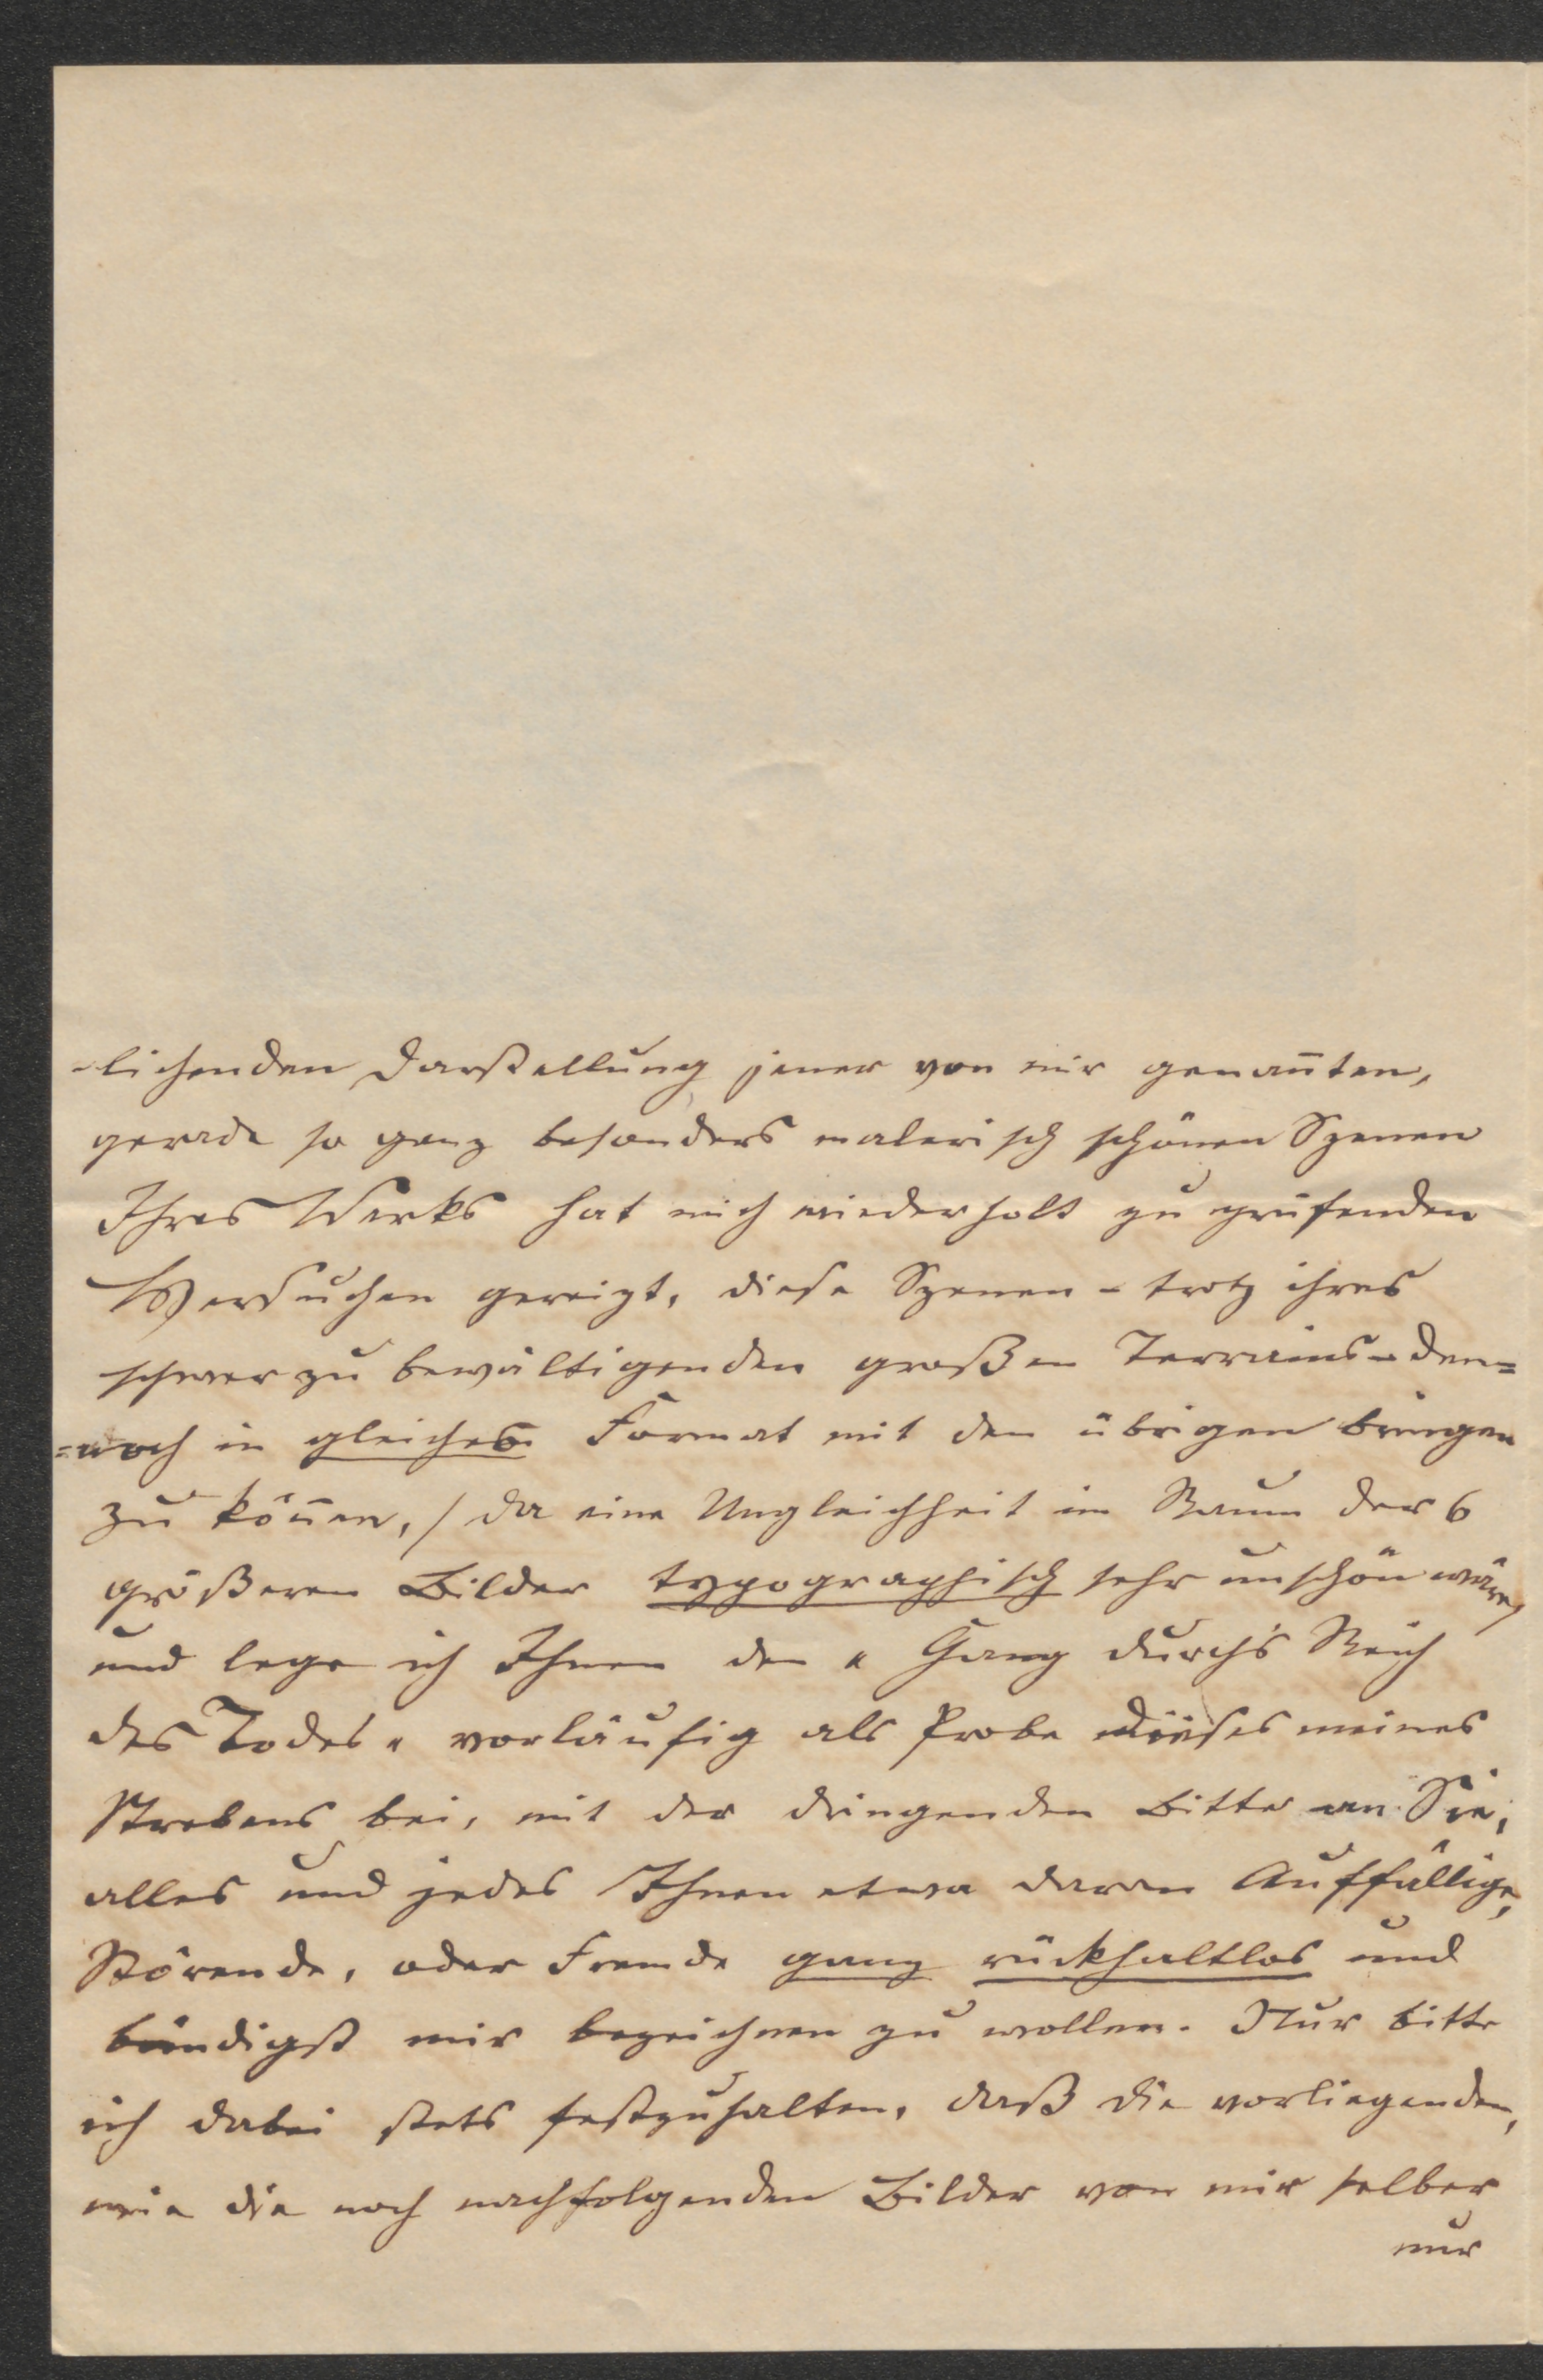 -lichenden Darstellung jener von mir genañten,
gerade so ganz besonders malerisch schönen Szenen
Ihres Werks hat mich wiederholt zu prüfenden
Versuchen gereizt, diese Szenen - trotz ihres
schwer zu bewältigenden großen Terrains - den=
=noch in gleiches Format mit den übrigen bringen
zu köñen, / da eine Ungleichheit im Raum der 6
größeren Bilder typographisch sehr unschön wäre /
und lege ich Ihnen den " Gang durch's Reich
des Todes " vorläufig als Probe dieses meines
Strebens bei, mit der dringenden Bitte an Sie,
alles und jedes Ihnen etwa daran Auffällige,
Störende, oder Fremde ganz rückhaltlos und
bündigst mir bezeichnen zu wollen. Nur bitte
ich dabei stets festzuhalten, daß die vorliegenden,
wie die noch nachfolgenden Bilder von mir selber
nur